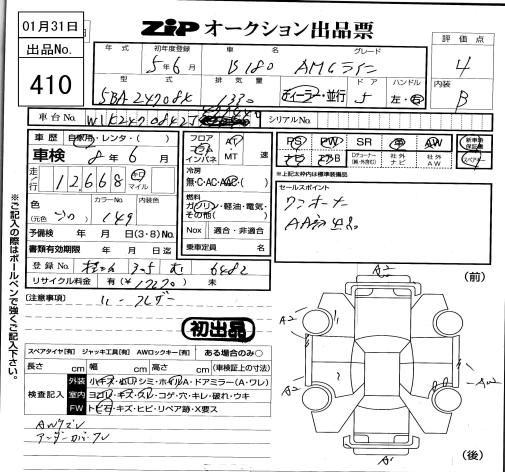 01月31日
ZIP オークション出品票
出品No.
410
年式 初年度登録 車名 グレード 評価点
5年6月 B180 AMGライン 4
型式 排気量 ドア ハンドル 内装
5BA-247084 1330 ディーラー・並行 5 左・右 B
車台No. シリアルNo.
車歴 自家用・レンタ・( )
車検 8年6月
走行 12,668 Km マイル
色 (元色 ) カラーNo. 149 内装色
予備検 年 月 日(3・8) No.
書類有効期限 年 月 日迄
登録No. 305 む 6482
リサイクル料金 有(¥ 17270) 未
フロア フロア インパネ AT MT 速
冷房 無・C・AC・AAC( )
燃料 ガソリン・軽油・電気・その他( )
Nox 適合・非適合
乗車定員 名
PS PW SR 革 AW 新車時保証書
ナビ エアB Dチューナー(純・外含む) 社外ナビ 社外AW スペアキー
*上記太枠内は標準装備品
セールスポイント
ワンオーナー
AA初出品
※ご記入の際はボールペンで強くご記入下さい。
[注意事項]
初出品
スペアタイヤ[有] ジャッキ工具[有] AWロックキー[有] ある場合のみ○
長さ cm 幅 cm 高さ cm (車検証上の寸法)
検査記入 外装 小キズ・凹・シミ・ホイルA・ドアミラー(A・ワレ)
室内 ヨゴレ・キズ・スレ・コゲ・穴・キレ・破れ・ウキ
FW トビ石・キズ・ヒビ・リペア跡・X要ス
AWキズ
アンダーカバースレ
(前)
A2
A2
A2
AW
A1
(後)